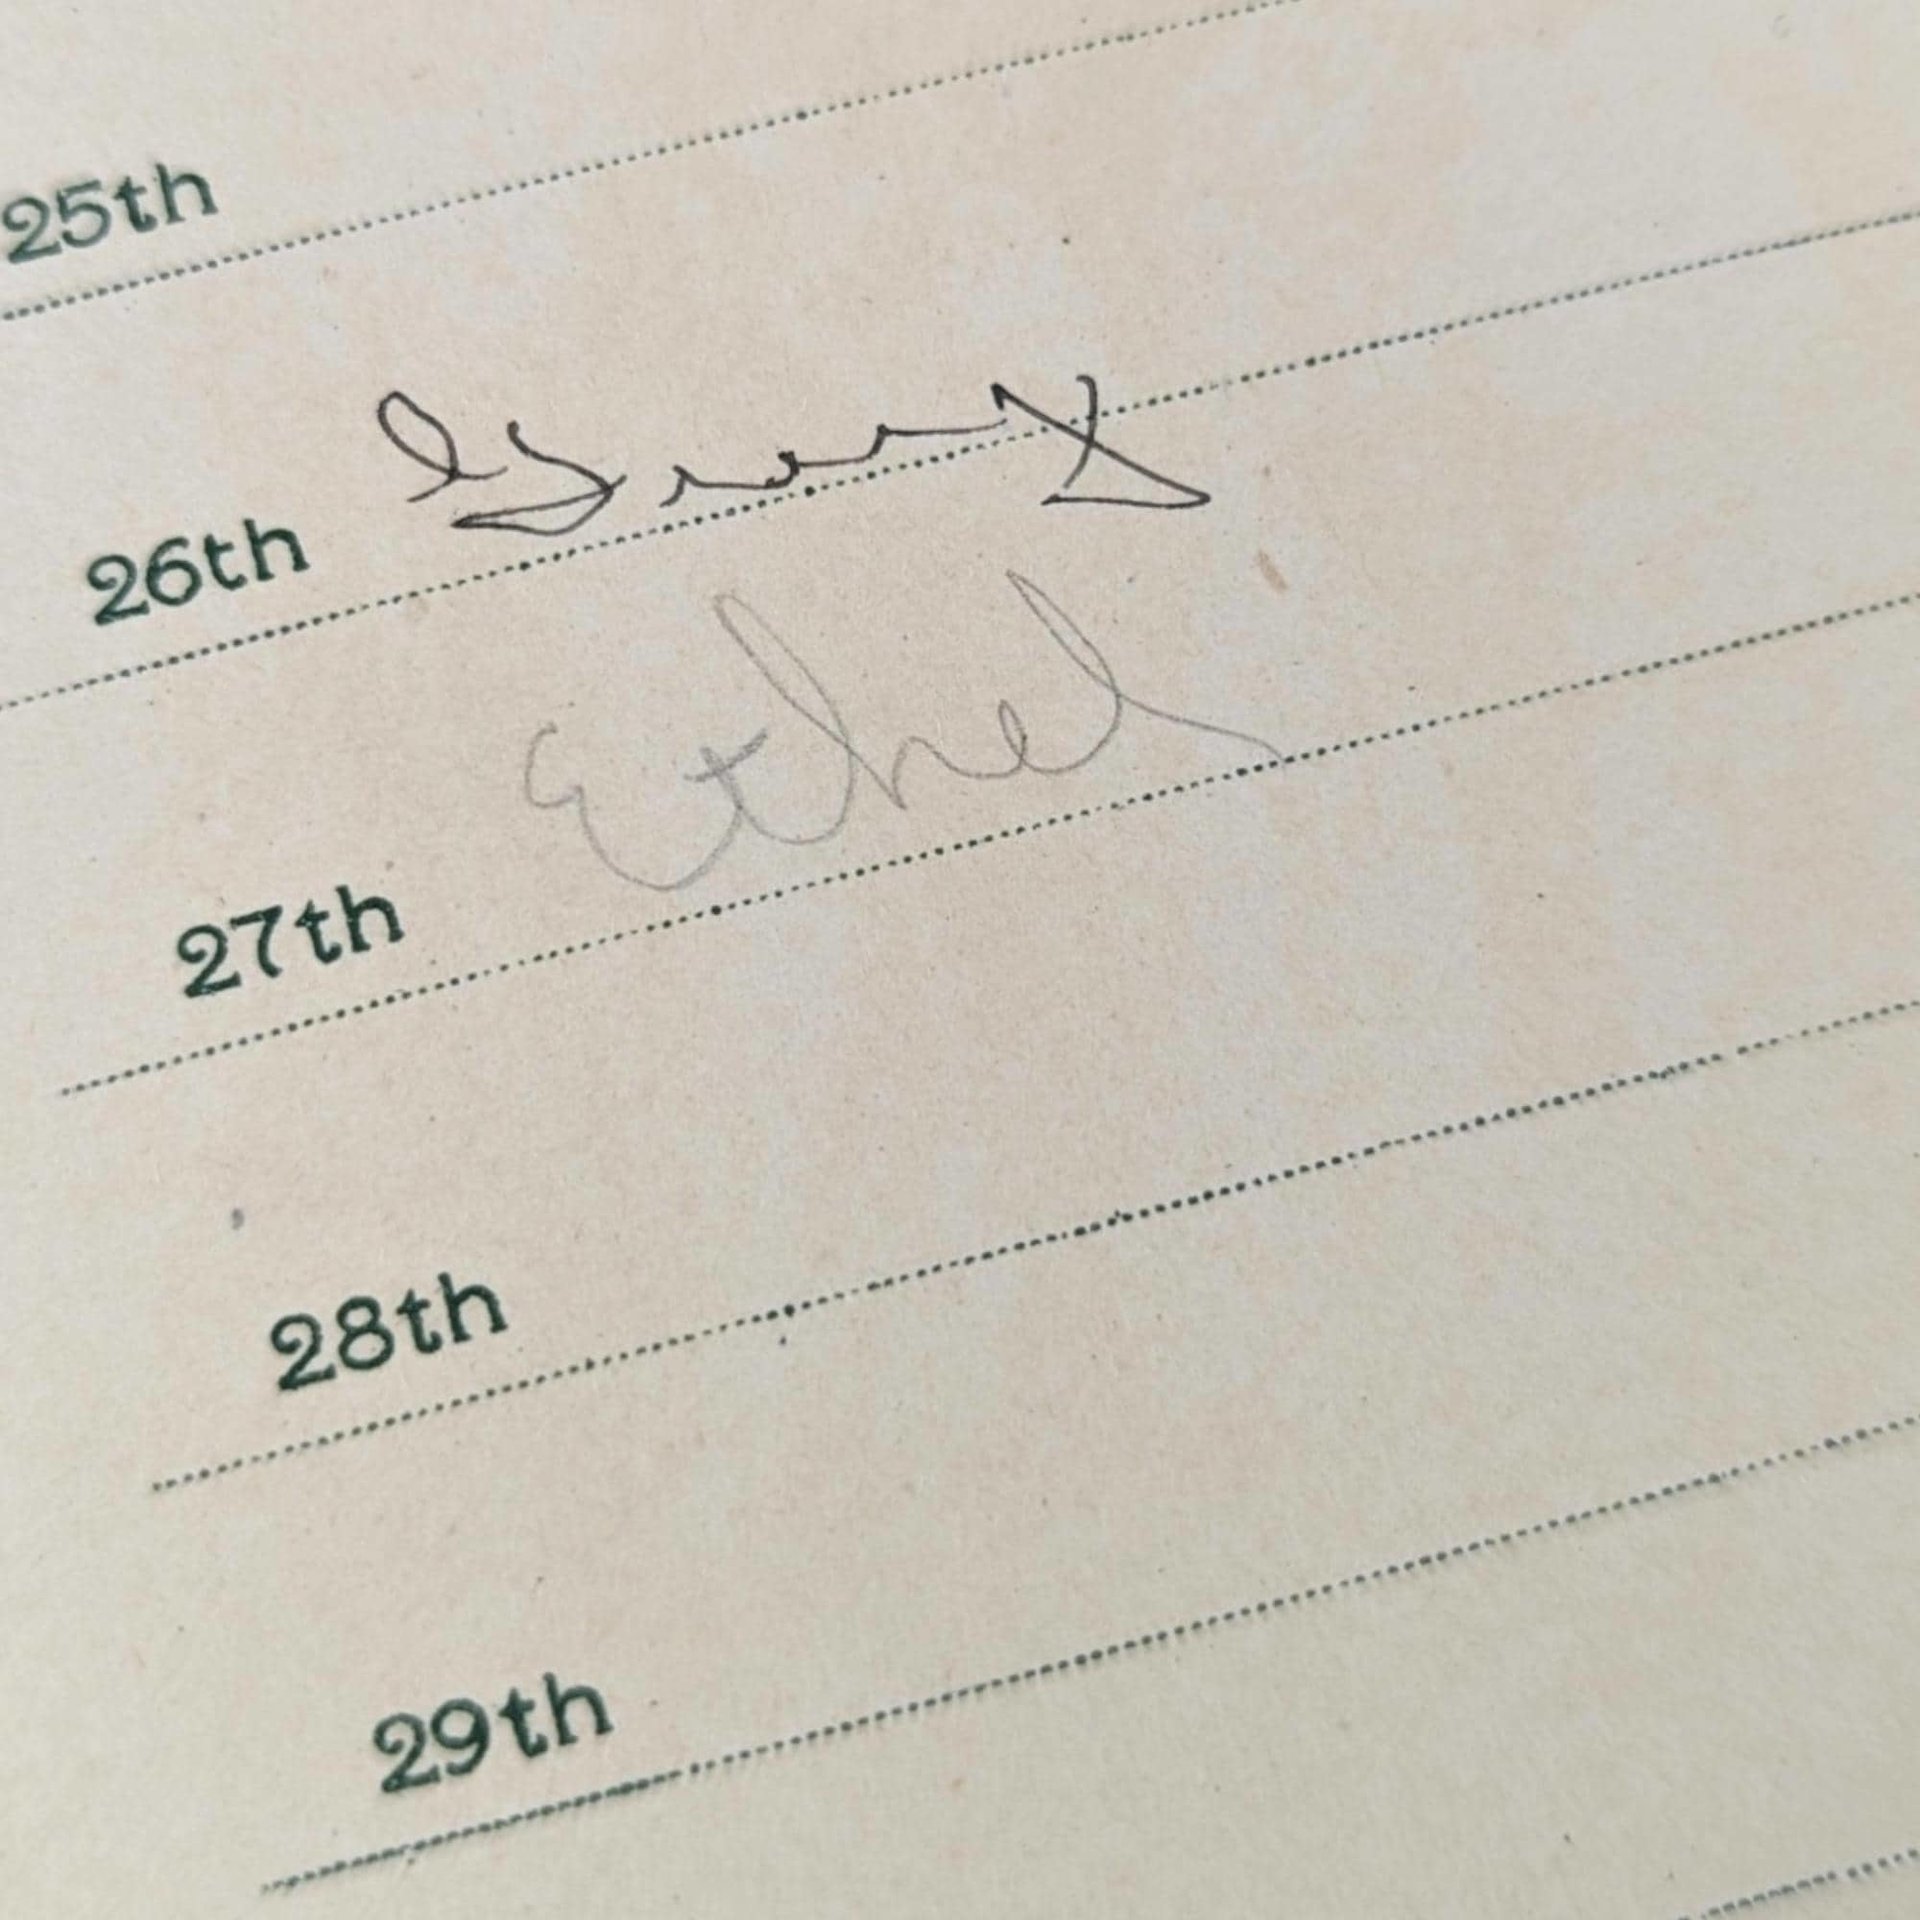 25th
26th
Ethel
27th
28th
29th